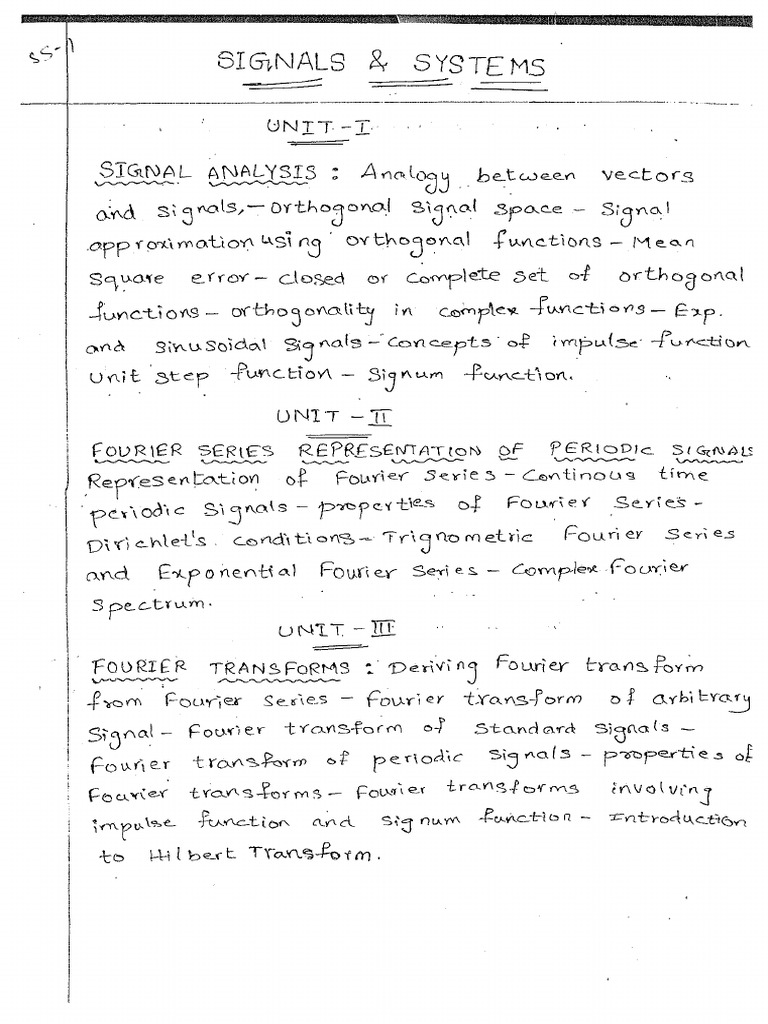 SS-1
SIGNALS & SYSTEMS
UNIT-I
SIGNAL ANALYSIS : Analogy between vectors
and signals,- orthogonal signal space - Signal
approximation using orthogonal functions - Mean
Square error - closed or complete set of orthogonal
functions - orthogonality in complex functions - Exp.
and sinusoidal signals - concepts of impulse function
Unit step function - Signum function.
UNIT - II
FOURIER SERIES REPRESENTATION OF PERIODIC SIGNALS
Representation of Fourier series - Continous time
periodic signals - properties of Fourier Series -
Dirichlet's conditions - Trignometric Fourier Series
and Exponential Fourier series - Complex Fourier
Spectrum.
UNIT - III
FOURIER TRANSFORMS : Deriving Fourier transform
from Fourier series - Fourier transform of arbitrary
Signal - Fourier transform of standard signals -
Fourier transform of periodic signals - properties of
Fourier transforms - Fourier transforms involving
impulse function and signum function - Introduction
to Hilbert Transform.